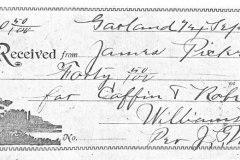 50/100 Garland
Received from James
Forty 50/100
for Coffin & Robe
Williams
No. Per J.